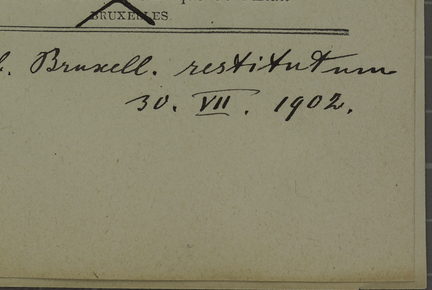 BRUXELLES
Bruxell. restitutum
30. VII. 1902.